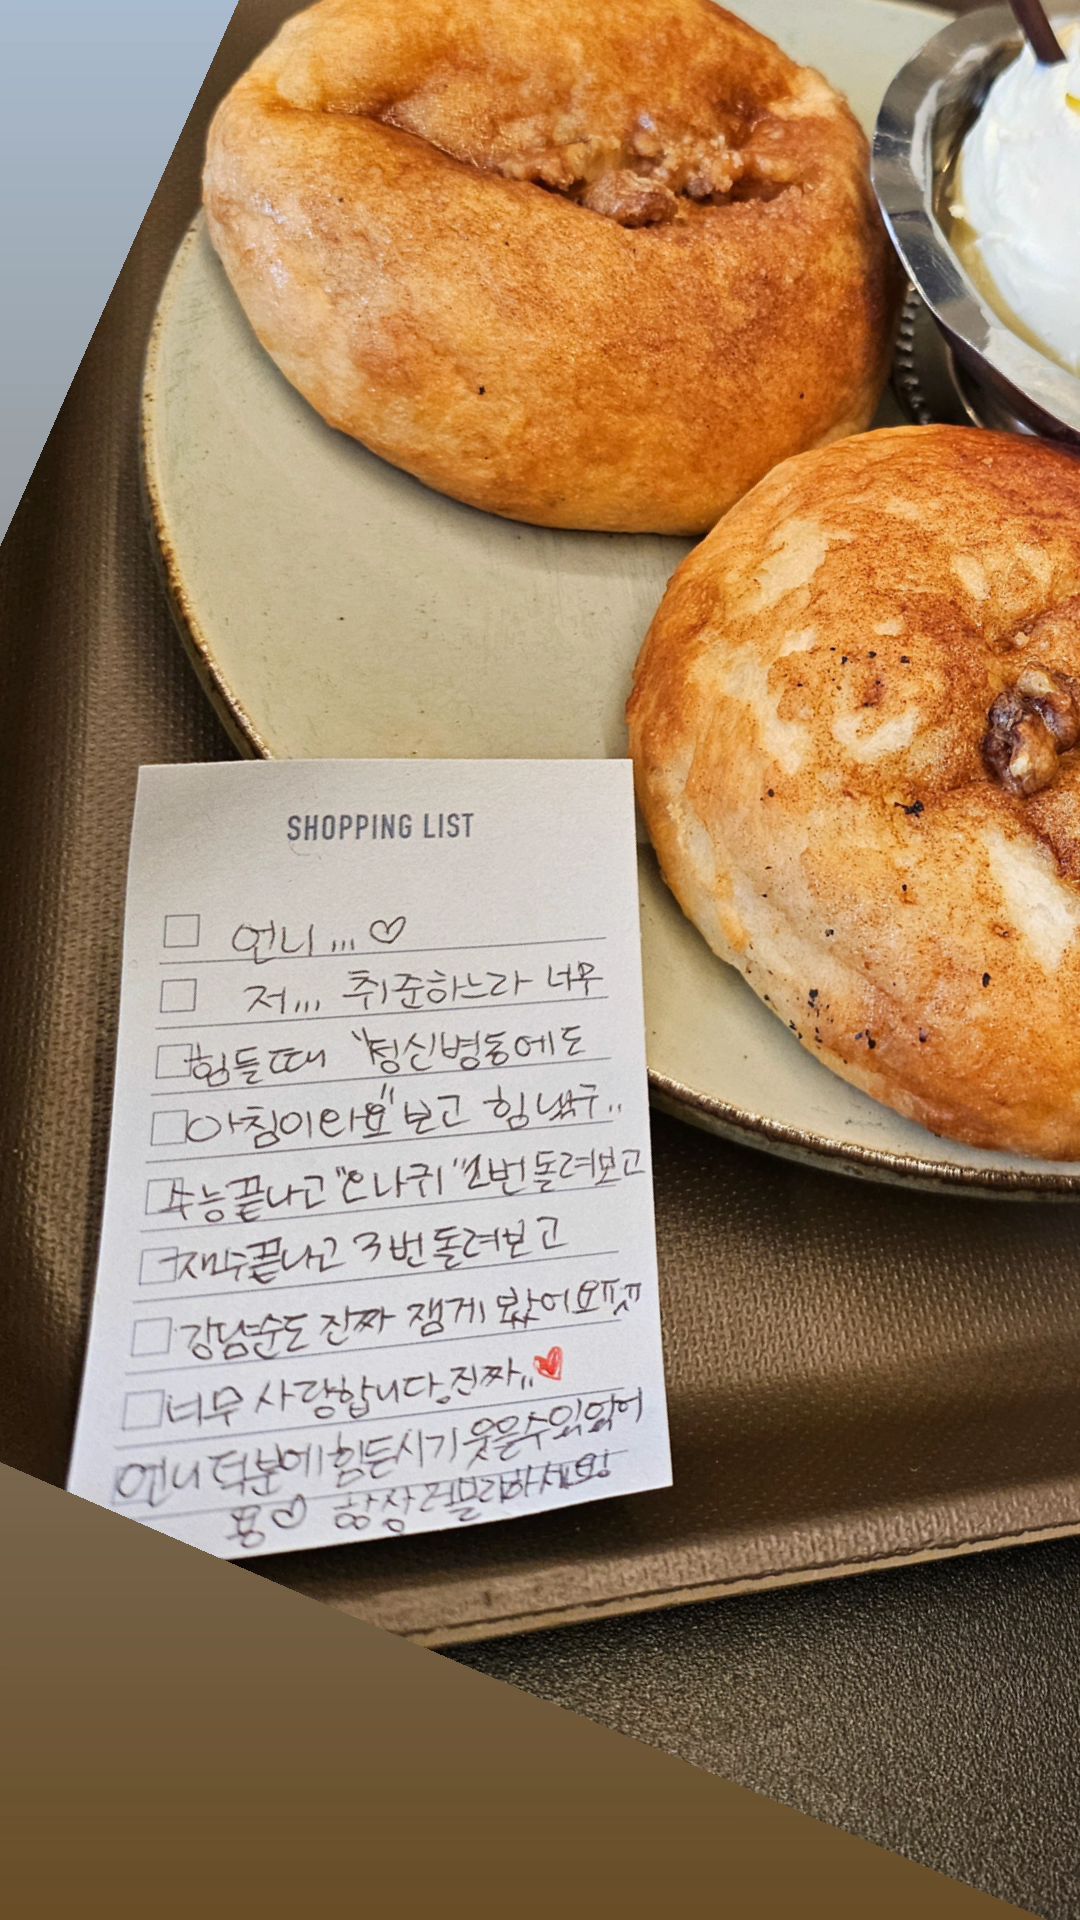 SHOPPING LIST
언니... ♡
저... 취준하느라 너무
힘들때 "정신병동에도
아침이와요" 보고 힘냈구..
수능끝나고 "오나귀" 2번 돌려보고
재수끝나고 3번 돌려보고
강남순도 진짜 잼게 봤어요ㅠㅠ
너무 사랑합니다, 진짜.. ♥
언니 덕분에 힘든시기 웃을수있었어
용♡ 항상 러블리하세요